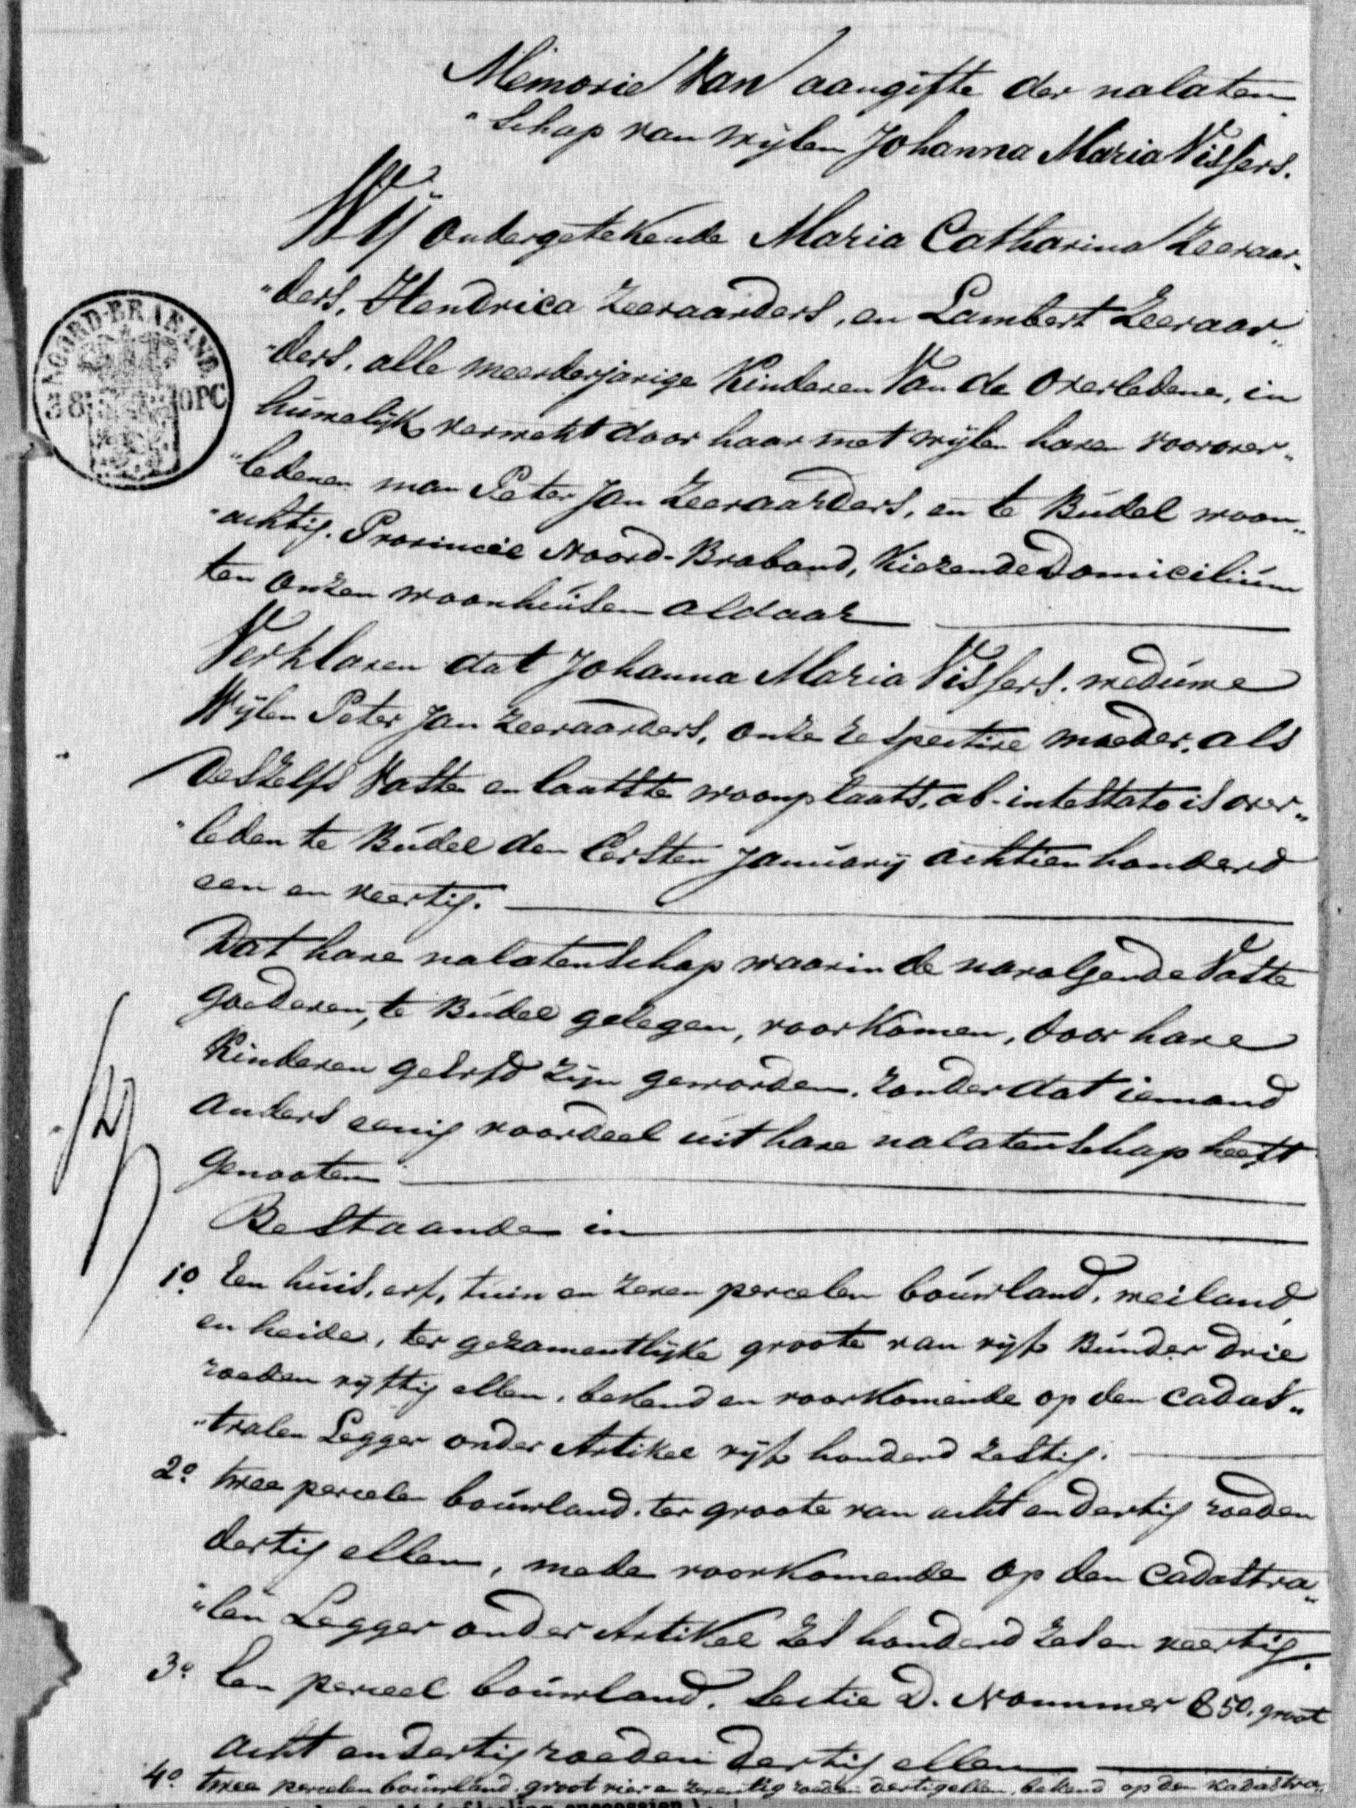 Memorie van aangifte der nalaten„
„schap van wijlen Johanna Maria Vissers.
Wij ondergetekende Maria Catharina Zeeraar„
„ders, Hendrica Zeeraarders, en Lambert Zeeraar„
„ders, alle meerderjarige Kinderen van de overledene, in
huwelijk verwekt door haar met wijlen haren voorover„
„ledenen man Peter Jan Zeeraarders, en te Budel woon„
„achtig. Provincie Noord-Braband, Kiezende Domicilium
ten onzen woonhuisen aldaar
Verklaren dat Johanna Maria Vissers. weduwe
Wijlen Peter Jan Zeeraarders, onze respective moeder, als
deszelfs vaste en laatste woonplaats, ab-intestato is over„
„leden te Budel den Eersten January achtien honderd
een en veertig.
Dat hare nalatenschap waarin de navolgende Vaste
goederen, te Budel gelegen, voorkomen, door hare
Kinderen geërfd zijn geworden. zonder dat iemand
anders eenig voordeel uit hare nalatenschap heeft
genooten
Bestaande in
1o Een huis, erf, tuin en zeven percelen bouwland, weiland
en heide, ter gezamentlijke groote van vijf Bunder drie
roeden vijftig ellen, bekend en voorkomende op den cadas„
„tralen Legger onder Artikel vijf honderd zestig.
2o twee percelen bouwland. ter groote van acht en dertig roeden
dertig ellen, mede voorkomende op den cadastra„
„len Legger onder Artikel zes honderd zes en veertig.
3o Een perceel bouwland. Sectie D. Nommer 850. groot
acht en dertig roeden dertig ellen
4o twee percelen bouwland. groot vier en zeventig roeden dertig ellen, bekend op den kadastra„
NOORD-BRABAND
38 OPC